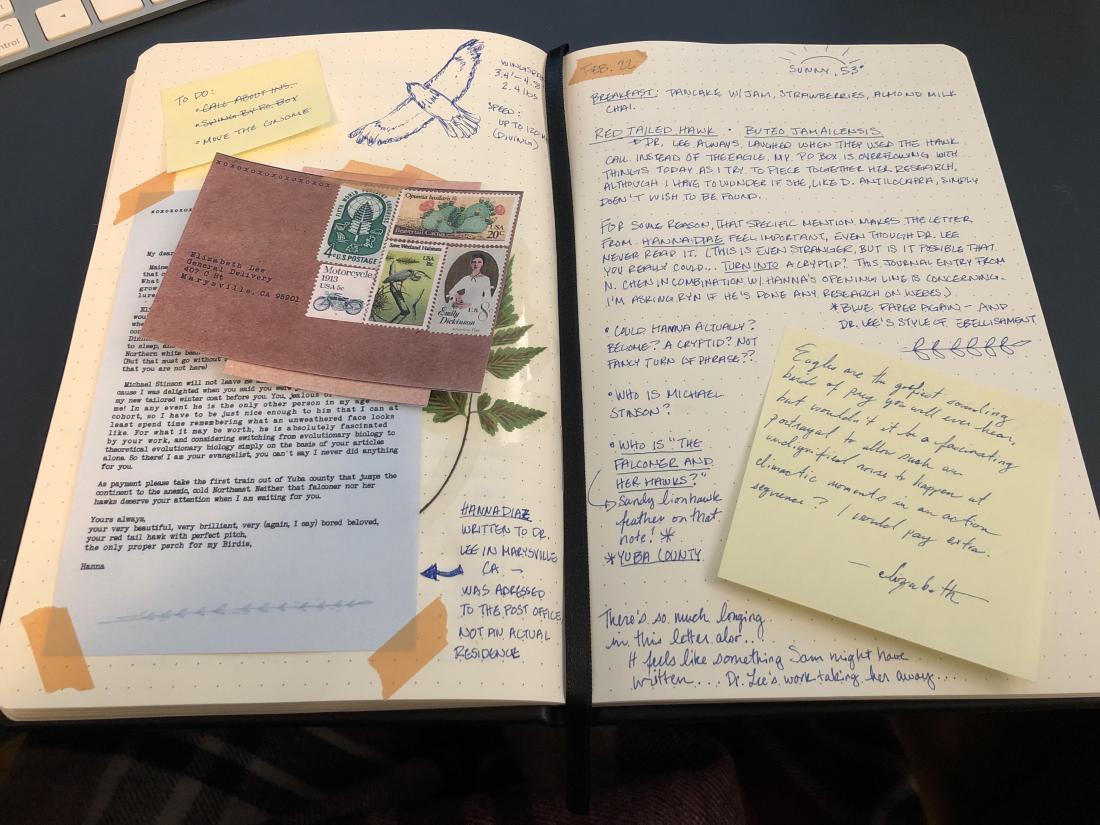 control
TO DO:
• CALL ABOUT INS.
• SWING BY P.O. BOX
• MOVE THE GNOME
WINGSPAN
3.4'-4.8'
2.4 lbs
SPEED:
UP TO 120 M
(DIVING)
xoxoxoxoxoxoxoxo
Elizabeth Lee
General Delivery
407 C St
Marysville, CA 95901
FIFTH WORLD
4¢ U.S. POSTAGE
Opuntia basilaris
Beavertail Cactus
USA
20c
Motorcycle
1913
USA 5c
Save Wetland Habitats
USA
U.S. 8
Emily
Dickinson
xoxoxoxo
My dear
Maine
that
What
grow
lure
would
when
to sleep, and
Northern white
(But that must go without
that you are not here)
Michael Stinson will not leave me
cause I was delighted when you said you were
my new tailored winter coat before you. You, jealous of
me! In any event he is the only other person in my age
cohort, so I have to be just nice enough to him that I can at
least spend time remembering what an unweathered face looks
like. For what it may be worth, he is absolutely fascinated
by your work, and considering switching from evolutionary biology to
theoretical evolutionary biology simply on the basis of your articles
alone. So there! I am your evangelist, you can't say I never did anything
for you.
As payment please take the first train out of Yuba county that jumps the
continent to the anemic, cold Northeast. Neither that falconer nor her
hawks deserve your attention when I am waiting for you.
Yours always,
your very beautiful, very brilliant, very (again, I say) bored beloved,
your red tail hawk with perfect pitch,
the only proper perch for my Birdie,
Hanna
HANNA DIAZ
WRITTEN TO DR.
LEE IN MARYSVILLE
CA. –
WAS ADRESSED
TO THE POST OFFICE,
NOT AN ACTUAL
RESIDENCE
FEB. 22
SUNNY, 53°
BREAKFAST: PANCAKE W/ JAM, STRAWBERRIES, ALMOND MILK
CHAI.
RED TAILED HAWK • BUTEO JAMAICENSIS
DR. LEE ALWAYS LAUGHED WHEN THEY USED THE HAWK
CALL INSTEAD OF THE EAGLE. MY PO BOX IS OVERFLOWING WITH
THINGS TODAY AS I TRY TO PIECE TOGETHER HER RESEARCH,
ALTHOUGH I HAVE TO WONDER IF SHE, LIKE D. ANTILOCAPRA, SIMPLY
DOEN'T WISH TO BE FOUND.
FOR SOME REASON, THAT SPECIFIC MENTION MAKES THE LETTER
FROM HANNA DIAZ FEEL IMPORTANT, EVEN THOUGH DR. LEE
NEVER READ IT. (THIS IS EVEN STRANGER, BUT IS IT POSIBLE THAT
YOU REALLY COULD... TURN INTO A CRYPTID? THIS JOURNAL ENTRY FROM
N. CHEN IN COMBINATION W/ HANNA'S OPENING LINE IS CONCERNING.
I'M ASKING RYN IF HE'S DONE ANY RESEARCH ON WEBES.)
* BLUE PAPER AGAIN – AND
DR. LEE'S STYLE OF EBELLISHMENT
• COULD HANNA ACTUALLY?
BECOME? A CRYPTID? NOT
FANCY TURN OF PHRASE??
• WHO IS MICHAEL
STINSON?
• WHO IS "THE
FALCONER AND
HER HAWKS?"
Sandy lionhawk
feather on that
note! *
* YUBA COUNTY
Eagles are the goofiest sounding
birds of prey you will ever hear,
but wouldn't it be a fascinating
portrayal to allow such an
undignified noise to happen at
climactic moments in an action
sequence? I would pay extra.
– elizabeth
There's so much longing
in this letter, alor...
It feels like something Sam might have
written.... Dr. Lee's work taking her away...